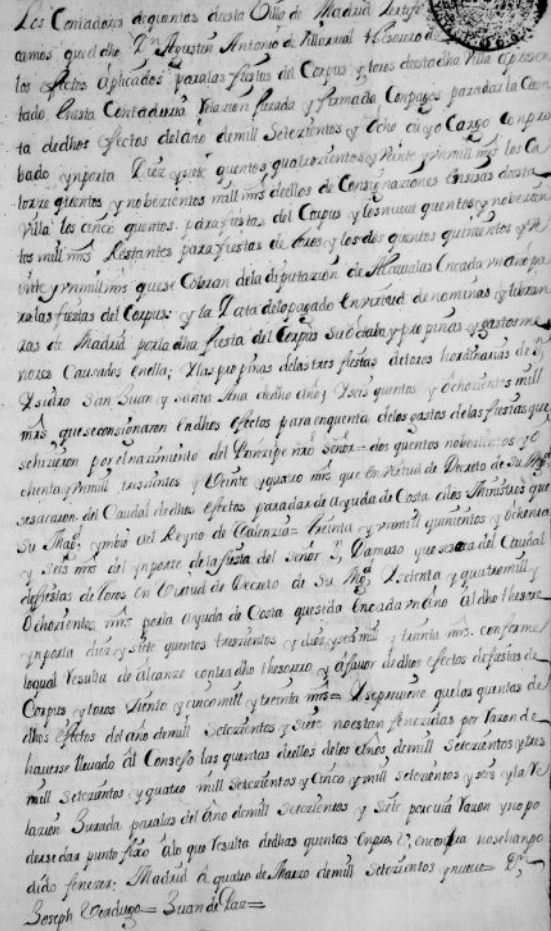 Los Contadores de quentas desta Villa de Madrid Zertifi
camos que el dho Dn Agustin Antonio de Villarreal thesorero de
los efectos aplicados para las fiestas del Corpus y toros desta dha Villa a presen
tado en esta Contaduria relazion jurada y firmada Con pagos para dar la Cuen
ta de dhos efectos del año de mill Setezientos y ocho cuyo Cargo Conpro
bado ynporta Diez y siete quentos quatrozientos y Veinte y un mill mrs los Ca
torze quentos y nobezientos mill mrs dellos de Consignaziones en sisas desta
Villa los cinco quentos para fiestas del Corpus y los nueve quentos y nobezien
tos mill mrs Restantes para fiestas de toros y los dos quentos quinientos y Ve
inte y un mill mrs que se Cobran de la diputazion de Alcavalas Encavezamiento pa
ra las fiestas del Corpus: y la Data de lo pagado En virtud de nominas y libran
zas de Madrid por la dha fiesta del Corpus su octaba y propinas y gastos me
nores Causados en ella; Y las propinas de las tres fiestas de toros hordinarias de Sn
Ysidro San Juan y Santa Ana de dho año; Y seis quentos y Ochozientos mill
mrs que se consignaron en dhos efectos para en quenta de los gastos de las fiestas que
se hizieron por el nazimiento del Prinzipe nro Señor = dos quentos nobezientos y o
chenta y un mill trescientos y Veinte y quatro mrs que en virtud de Decreto de su Magd
se sacaron del Caudal de dhos efectos para dar de ayuda de Costa a los Ministros que
su Magd ymbió al Reyno de Valenzia = treinta y un mill quinientos y ochenta
y seis mrs del ynporte de la fiesta del Señor Sn Damaso que se saca del Caudal
de fiestas de toros en Virtud de Decreto de Su Magd Y setenta y quatro mill y
Ochozientos mrs por la ayuda de Costa que se da Encada un año al dho thesorero
ynporta diez y siete quentos tresientos y diez y seis mill y treinta mrs. conforme
lo qual Resulta de alcanze contra dho thesorero y a favor de dhos efectos de fiestas de
Corpus y toros Ziento y cinco mill y treinta mrs = Y se previene que las quentas de
dhos efectos del año de mill Setezientos y Siete no estan fenezidas por Razon de
haverse llevado al Consejo las quentas dellos de los años de mill Setezientos y tres
mill Setezientos y quatro mill Setezientos y Cinco y mill setezientos y seis y la Re
lazion Jurada para las del año de mill Setezientos y Siete por cuia razon y no po
derse dar punto fixo a lo que Resulta de dhas quentas en pro, u, en contra no se han po
dido fenezer: Madrid â quatro de Marzo de mill setezientos y nueve = Dn
Joseph Verdugo = Juan de Paz =